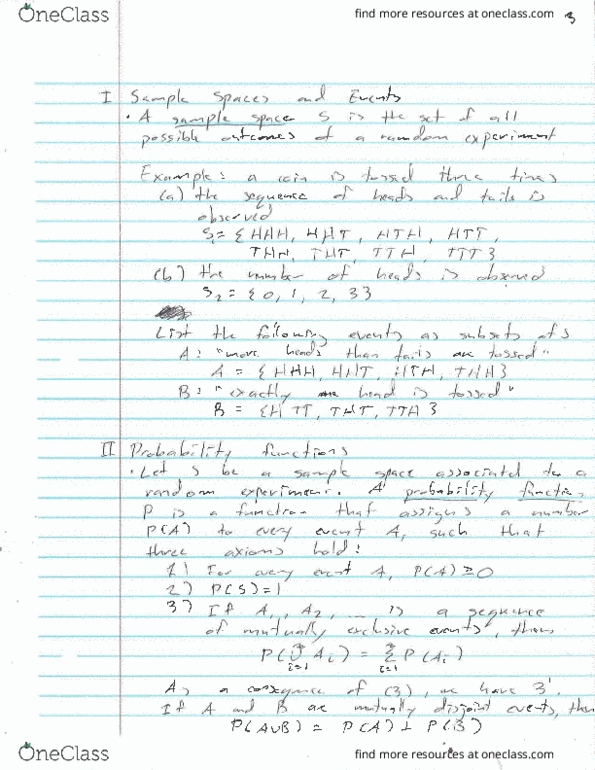 OneClass
find more resources at oneclass.com
3
I Sample Spaces and Events
• A sample space S is the set of all
possible outcomes of a random experiment
Example: a coin is tossed three times
(a) the sequence of heads and tails is
observed
S₁ = {HHH, HHT, HTH, HTT,
THH, THT, TTH, TTT}
(b) the number of heads is observed
S₂ = {0, 1, 2, 3}
List the following events as subsets of S
A: "more heads than tails are tossed"
A = {HHH, HHT, HTH, THH}
B: "exactly one head is tossed"
B = {HTT, THT, TTH}
II Probability functions
• Let S be a sample space associated to a
random experiment. A probability function
P is a function that assigns a number
P(A) to every event A, such that
three axioms hold:
1) For every event A, P(A) ≥ 0
2) P(S) = 1
3) If A₁, A₂, ... is a sequence
of mutually exclusive events, then
P(∞∪i=1 Ai) = ∞Σi=1 P(Ai)
As a consequence of (3), we have 3'.
If A and B are mutually disjoint events, then
P(A∪B) = P(A) + P(B)
OneClass
find more resources at oneclass.com